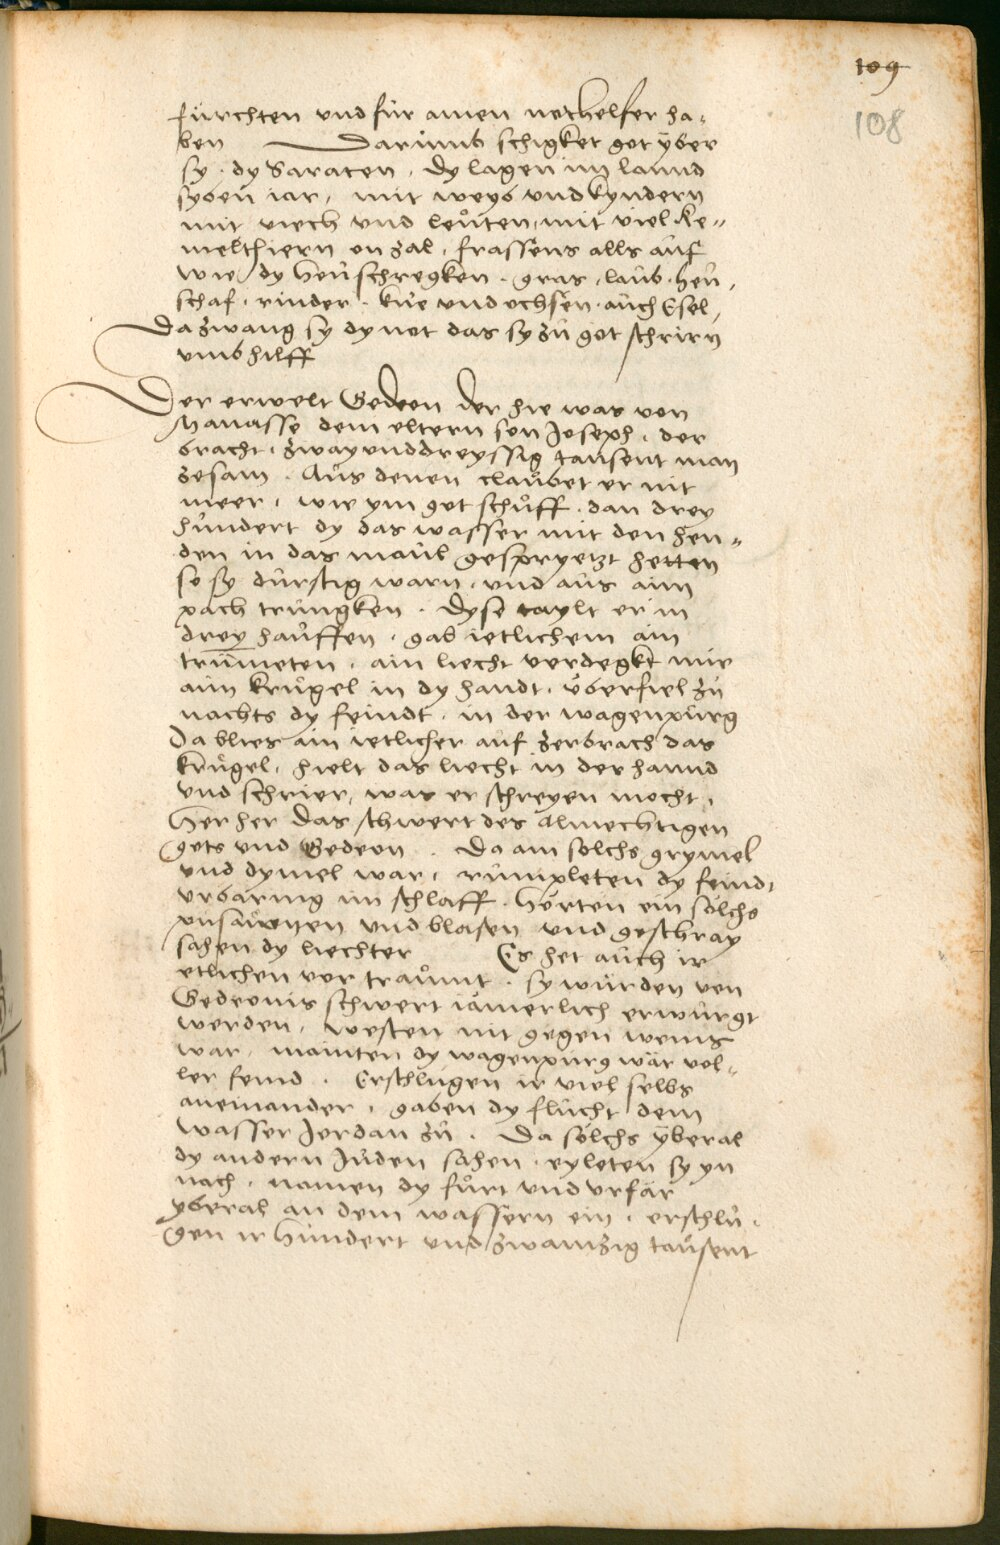 109
108
fürchten vnd für ainen nothelfer ha-
ben Darumb schigket got über
sy. dy Saracen, dy lagen im lannd
syben iar, mit weyb vnd kyndern
mit viech vnd leuten, mit viel ke-
melthiern on zal, frassens alls auf
wie dy heuschregken. gras, laub, heu,
schaf, rinder, küe vnd ochsen, auch Esel,
Da zwang sy dy not das sy zu got schrirn
vmb hilff
Der erwelt Gedeon der hie was von
Manasse dem eltern son Joseph, der
bracht, zway vnd dreyssig tausent man
zesam. Aus denen claubet er nit
meer, wie ym got schuff, dan drey
hundert dy das wasser mit den hen-
den in das maul gespryetzt hetten
so sy durstig warn, vnd aus aim
pach trungken. Dyse taylt er in
drey hauffen, gab ietlichem ain
trumeten, ain liecht verdegkt mit
aim krugel in dy handt, überfiel zu
nachts dy feindt, in der wagenpurg
Da blies ain ietlicher auf zerbrach das
krugel, hielt das liecht in der hannd
vnd schrier, was er schreyen mocht,
Herher das schwert des Almechtigen
gots vnd Gedeon. Da ain solchs grymel
vnd dymel war, rumpleten dy feind,
vrbaring im schlaff, horten ein solchs
pusaunen vnd blasen vnd geschray
sahen dy liechter Es het auch ir
etlichen vor traumt, sy wurden von
Gedeonis schwert iämerlich erwurgt
werden, westen nit gegen wems
war, mainten dy wagenpurg wär vol-
ler feind. Erschlugen ir viel selbs
aneinander, gaben dy flucht dem
wasser Jordan zu. Da solchs yberal
dy andern Juden sahen, eyleten sy yn
nach, namen dy furt vnd vrfar
yberal an dem wassern ein, erschlu-
gen ir hundert vnd zwainzig tausent